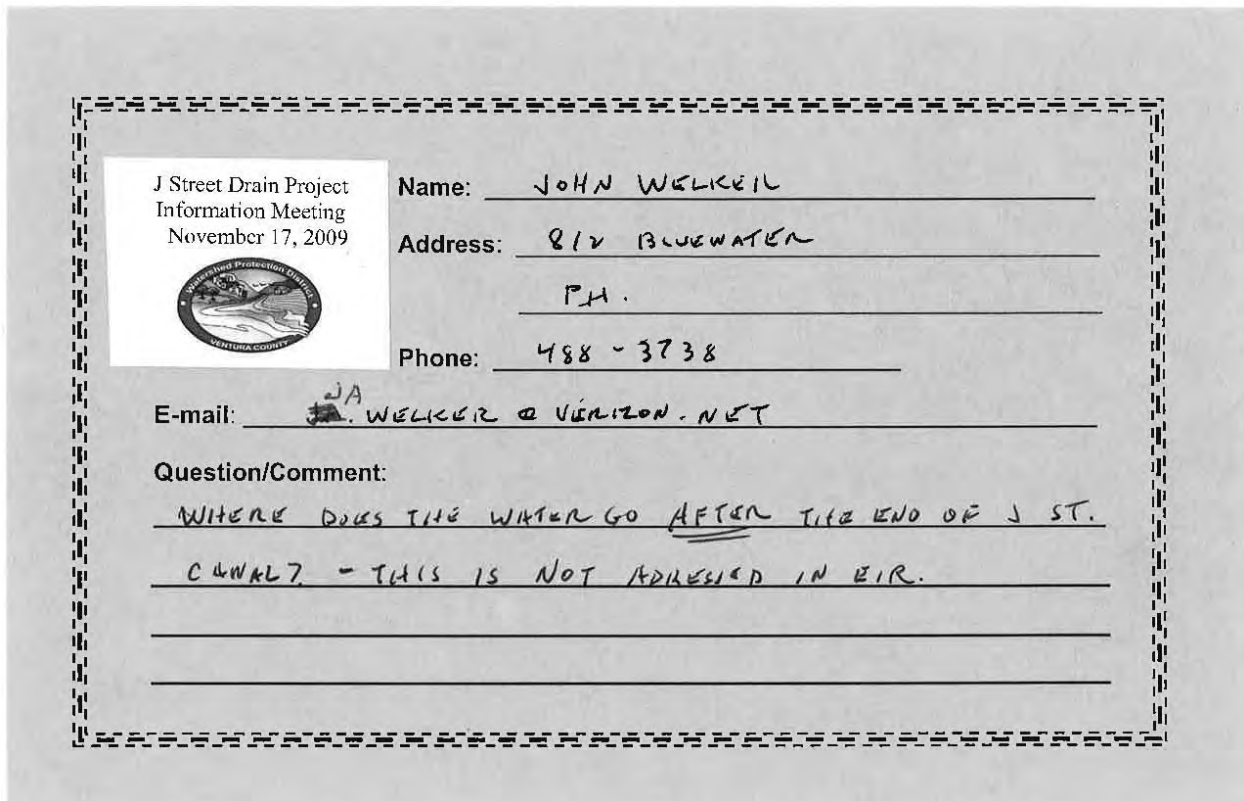 J Street Drain Project
Information Meeting
November 17, 2009
Watershed Protection District
VENTURA COUNTY
Name: JOHN WELKER
Address: 812 BLUEWATER
P.H.
Phone: 488-3738
E-mail: JA. WELKER @ VERIZON.NET
Question/Comment:
WHERE DOES THE WATER GO AFTER THE END OF J ST.
CANAL? - THIS IS NOT ADRESSED IN EIR.